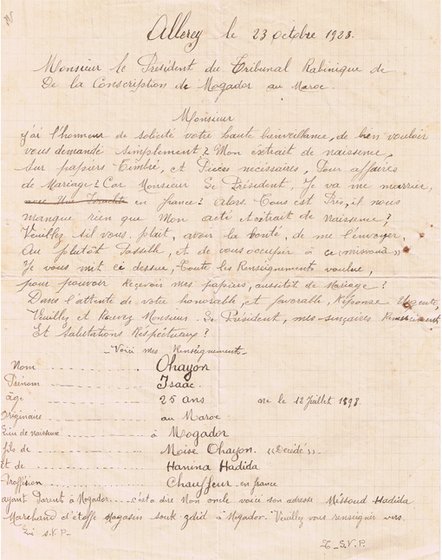 Allerey le 23 octobre 1923.
Monsieur le Président du Tribunal Rabinique de
De la Conscription de Mogador au Maroc.
Monsieur
j'ai l'honneur de solicité votre haute bienveillance, de bien vouloir
vous demandé simplement? Mon extrait de naissence,
Sur papiers Timbré, et Pièces necessaires, Pour affaires
de Mariage? Car Monsieur Le Président, Je va me marrier,
en france? Alors Tous est Prés, il nous
manque rien que Mon acté extrait de Naissence?
Veuillez s'il vous plait, avoir la bonté, de me l'envoyer,
Au plutôt Possible, et de vous occupér à ce
Je vous mit ci dessue, toute les Renseignements voulue,
pour pouvoir Reçevoir mes papiers, aussitôt de Mariage?
Dans l'attente de votre honorable, et favorable, Réponse Urgente,
Veuillez et Monsieur. Le President, mes sinçaires Remerciement
Et Salutations Réspéctueux?
Voici mes Renseignement
Nom Ohayon
Prenom Isaac
âge 25 ans né le 12 juillet 1898.
Originaire au Maroc
Lieu de naissance à Mogador
fils de Moïse Ohayon. «Décidé»
Et de Hanina Hadida
Proffission Chauffeur en france
ayant Parent à Mogador c'est a dire Mon oncle voici son adresse Missoud Hadida
Marchand d'étoffe Magasin souk-zdid à Mogador. Veuillez vous renseigner vers
lui S.V.P.
T. S. V. P.